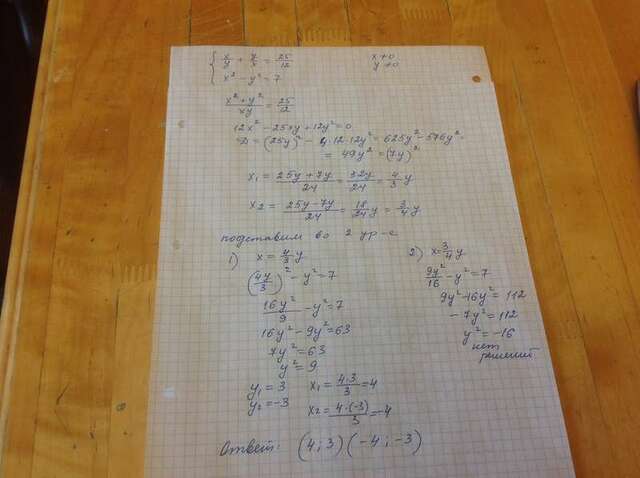 { x/y + y/x = 25/12   x≠0
x² - y² = 7   y≠0
(x² + y²)/(xy) = 25/12
12x² - 25xy + 12y² = 0
D = (25y)² - 4·12·12y² = 625y² - 576y² =
= 49y² = (7y)²
x₁ = (25y + 7y)/24 = 32y/24 = 4/3 y
x₂ = (25y - 7y)/24 = 18/24 y = 3/4 y
подставим во 2 ур-е
1) x = 4/3 y
(4y/3)² - y² = 7
16y²/9 - y² = 7
16y² - 9y² = 63
7y² = 63
y² = 9
y₁ = 3   x₁ = (4·3)/3 = 4
y₂ = -3   x₂ = (4·(-3))/3 = -4
2) x = 3/4 y
9y²/16 - y² = 7
9y² - 16y² = 112
- 7y² = 112
y² = -16
нет
решений
Ответ: (4; 3) (-4; -3)